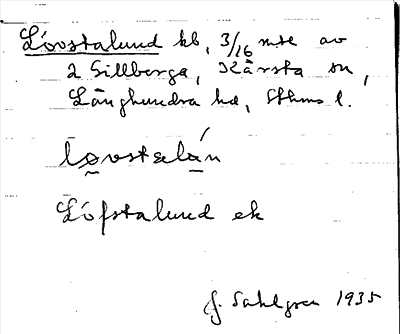 Lövstalund kb, 3/16 mtl av
2 Gillberga, Kårsta sn,
Långhundra hd, Sthms l.
løvstalán
Löfstalund ek
J. Sahlgren 1935